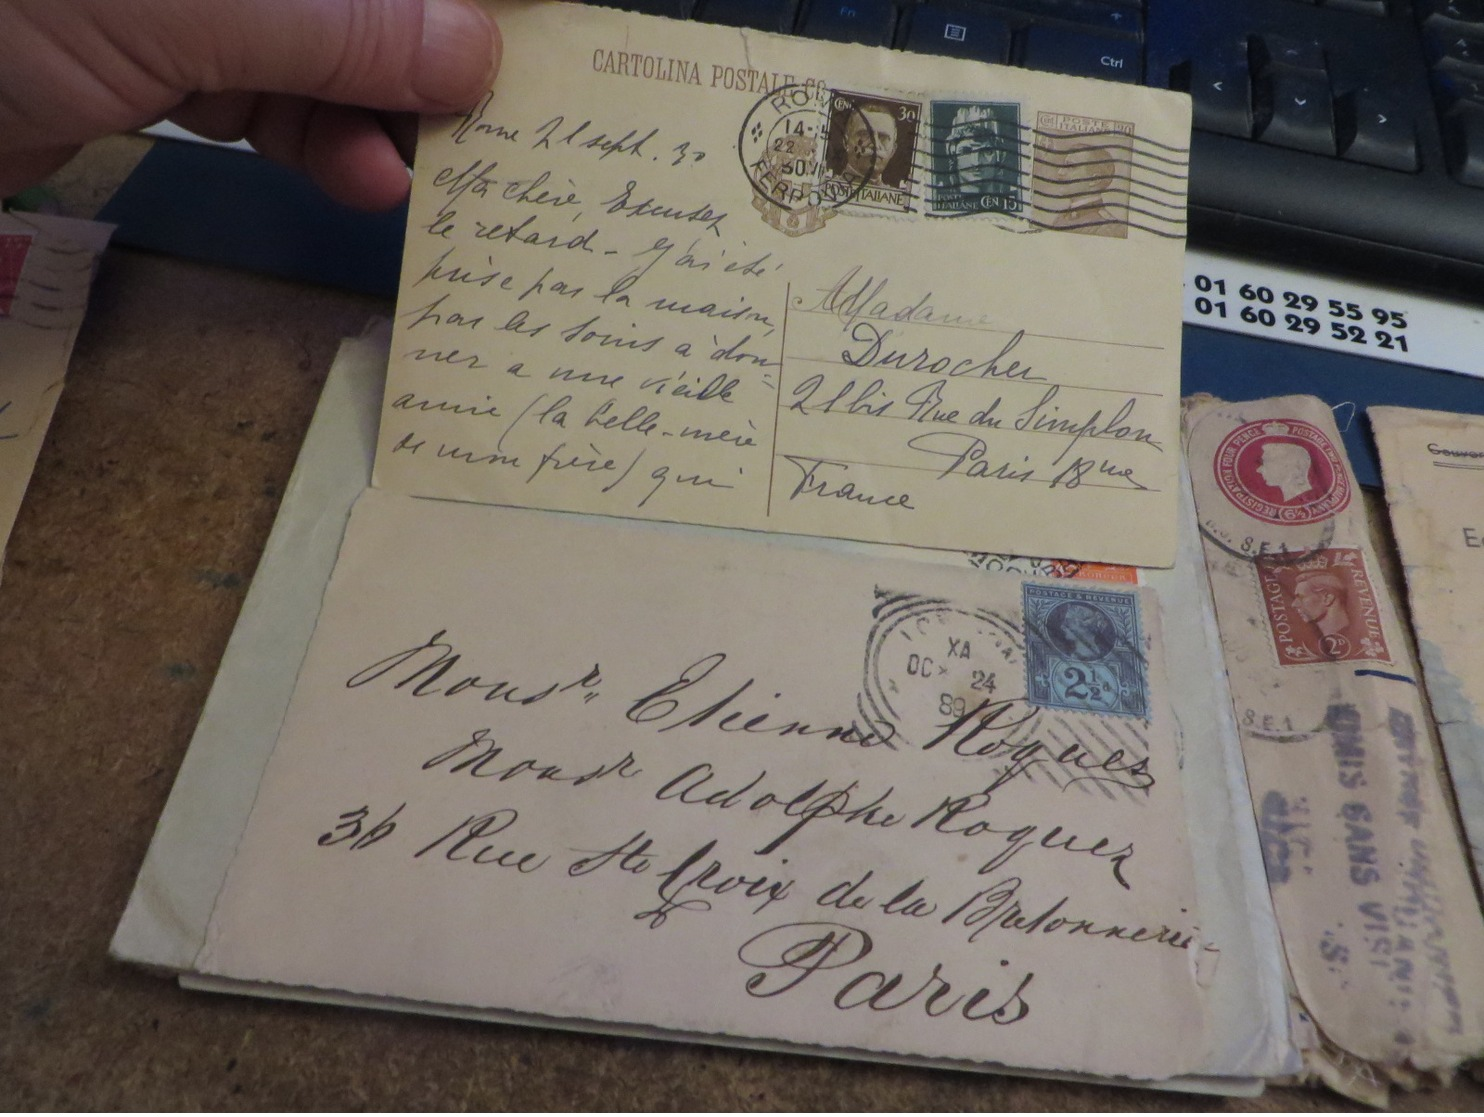 Fn
Ctrl
CARTOLINA POSTALE
ROMA
14-
22
30
FERROVIA
CEN. 30
POSTE ITALIANE
POSTE ITALIANE CEN 15
POSTE ITALIANE
Rome 21 sept. 30
Ma chère, Excusez
le retard - J'ai été
prise par la maison,
par les soins à don=
ner a une vieille
amie (la belle-mère
de mon frère) qui
Madame
Durocher
21bis Rue du Simplon
Paris 18me
France
01 60 29 55 95
01 60 29 52 21
XA
OC 24
89
POSTAGE & REVENUE
2½d
Monsr Etienne Roguez
Monsr Adolphe Roguez
36 Rue Ste Croix de la Bretonnerie
Paris
REGISTRATION FOUR PENCE POSTAGE TWO PENCE HALFPENNY
(6½)
S.E.1
POSTAGE REVENUE
2D
S.E.1
REMIS SANS VISI